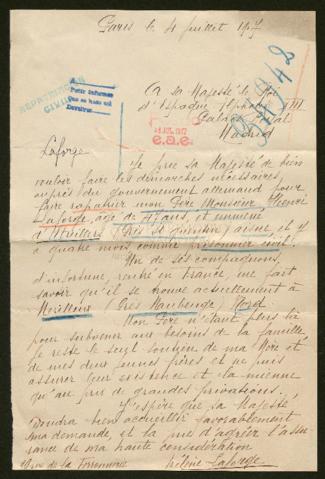 Paris le 4 juillet 1917
A sa Majesté le Roi
d'Espagne Alphonse XIII
Palais Royal
Madrid
REPATRIACION
CIVILES
Pedir Informes
Que se hace sal
Devuelvase
JUL. 1917
e.a.e.
Laforge
Je prie sa Majesté de bien
vouloir faire les démarches nécessaires,
auprès du gouvernement allemand pour
faire rapatrier mon Père Monsieur
Laforge, âgé de 47 ans, et emmené
à (Près St Quentin) Aisne, il y
à quatre mois comme Prisonnier civil.
Un de ses compagnons,
d'infortune, rentré en France, me fait
savoir qu'il se trouve actuellement à
Près Maubeuge, Nord
Mon Père n'étant plus là
pour subvenir aux besoins de la famille
je reste le seul soutien de ma Mère et
de mes deux jeunes frères et ne puis
assurer leur existence et la mienne
qu'au prix de grandes privations.
J'espère que sa Majesté,
Voudra bien accueillir favorablement
ma demande, et la prie d'agréer l'assu
rance de ma haute considération
rue de la Hélène Laforge